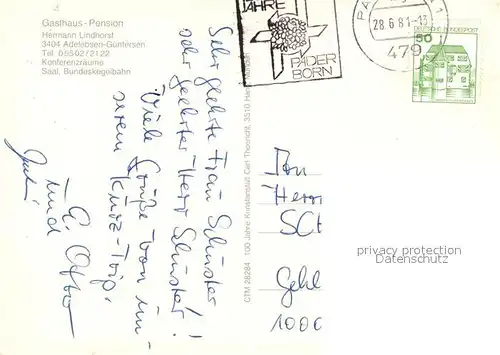 Gasthaus - Pension
Hermann Lindhorst
3404 Adelebsen-Güntersen
Tel. 05502/2122
Konferenzräume
Saal, Bundeskegelbahn
JAHRE
PADER
BORN
28.6.81-13
479
50
DEUTSCHE BUNDESPOST
Sehr geehrte Frau Schuster
sehr geehrter Herr Schuster!
Viele Grüße von un-
serem Kurz-Trip.
E. Otto
und
CTM 28284 100 Jahre Kunstanstalt Carl Thoericht, 3510 Hann. Münden
An
Herrn
SCh
Gehl
1000
privacy protection
Datenschutz